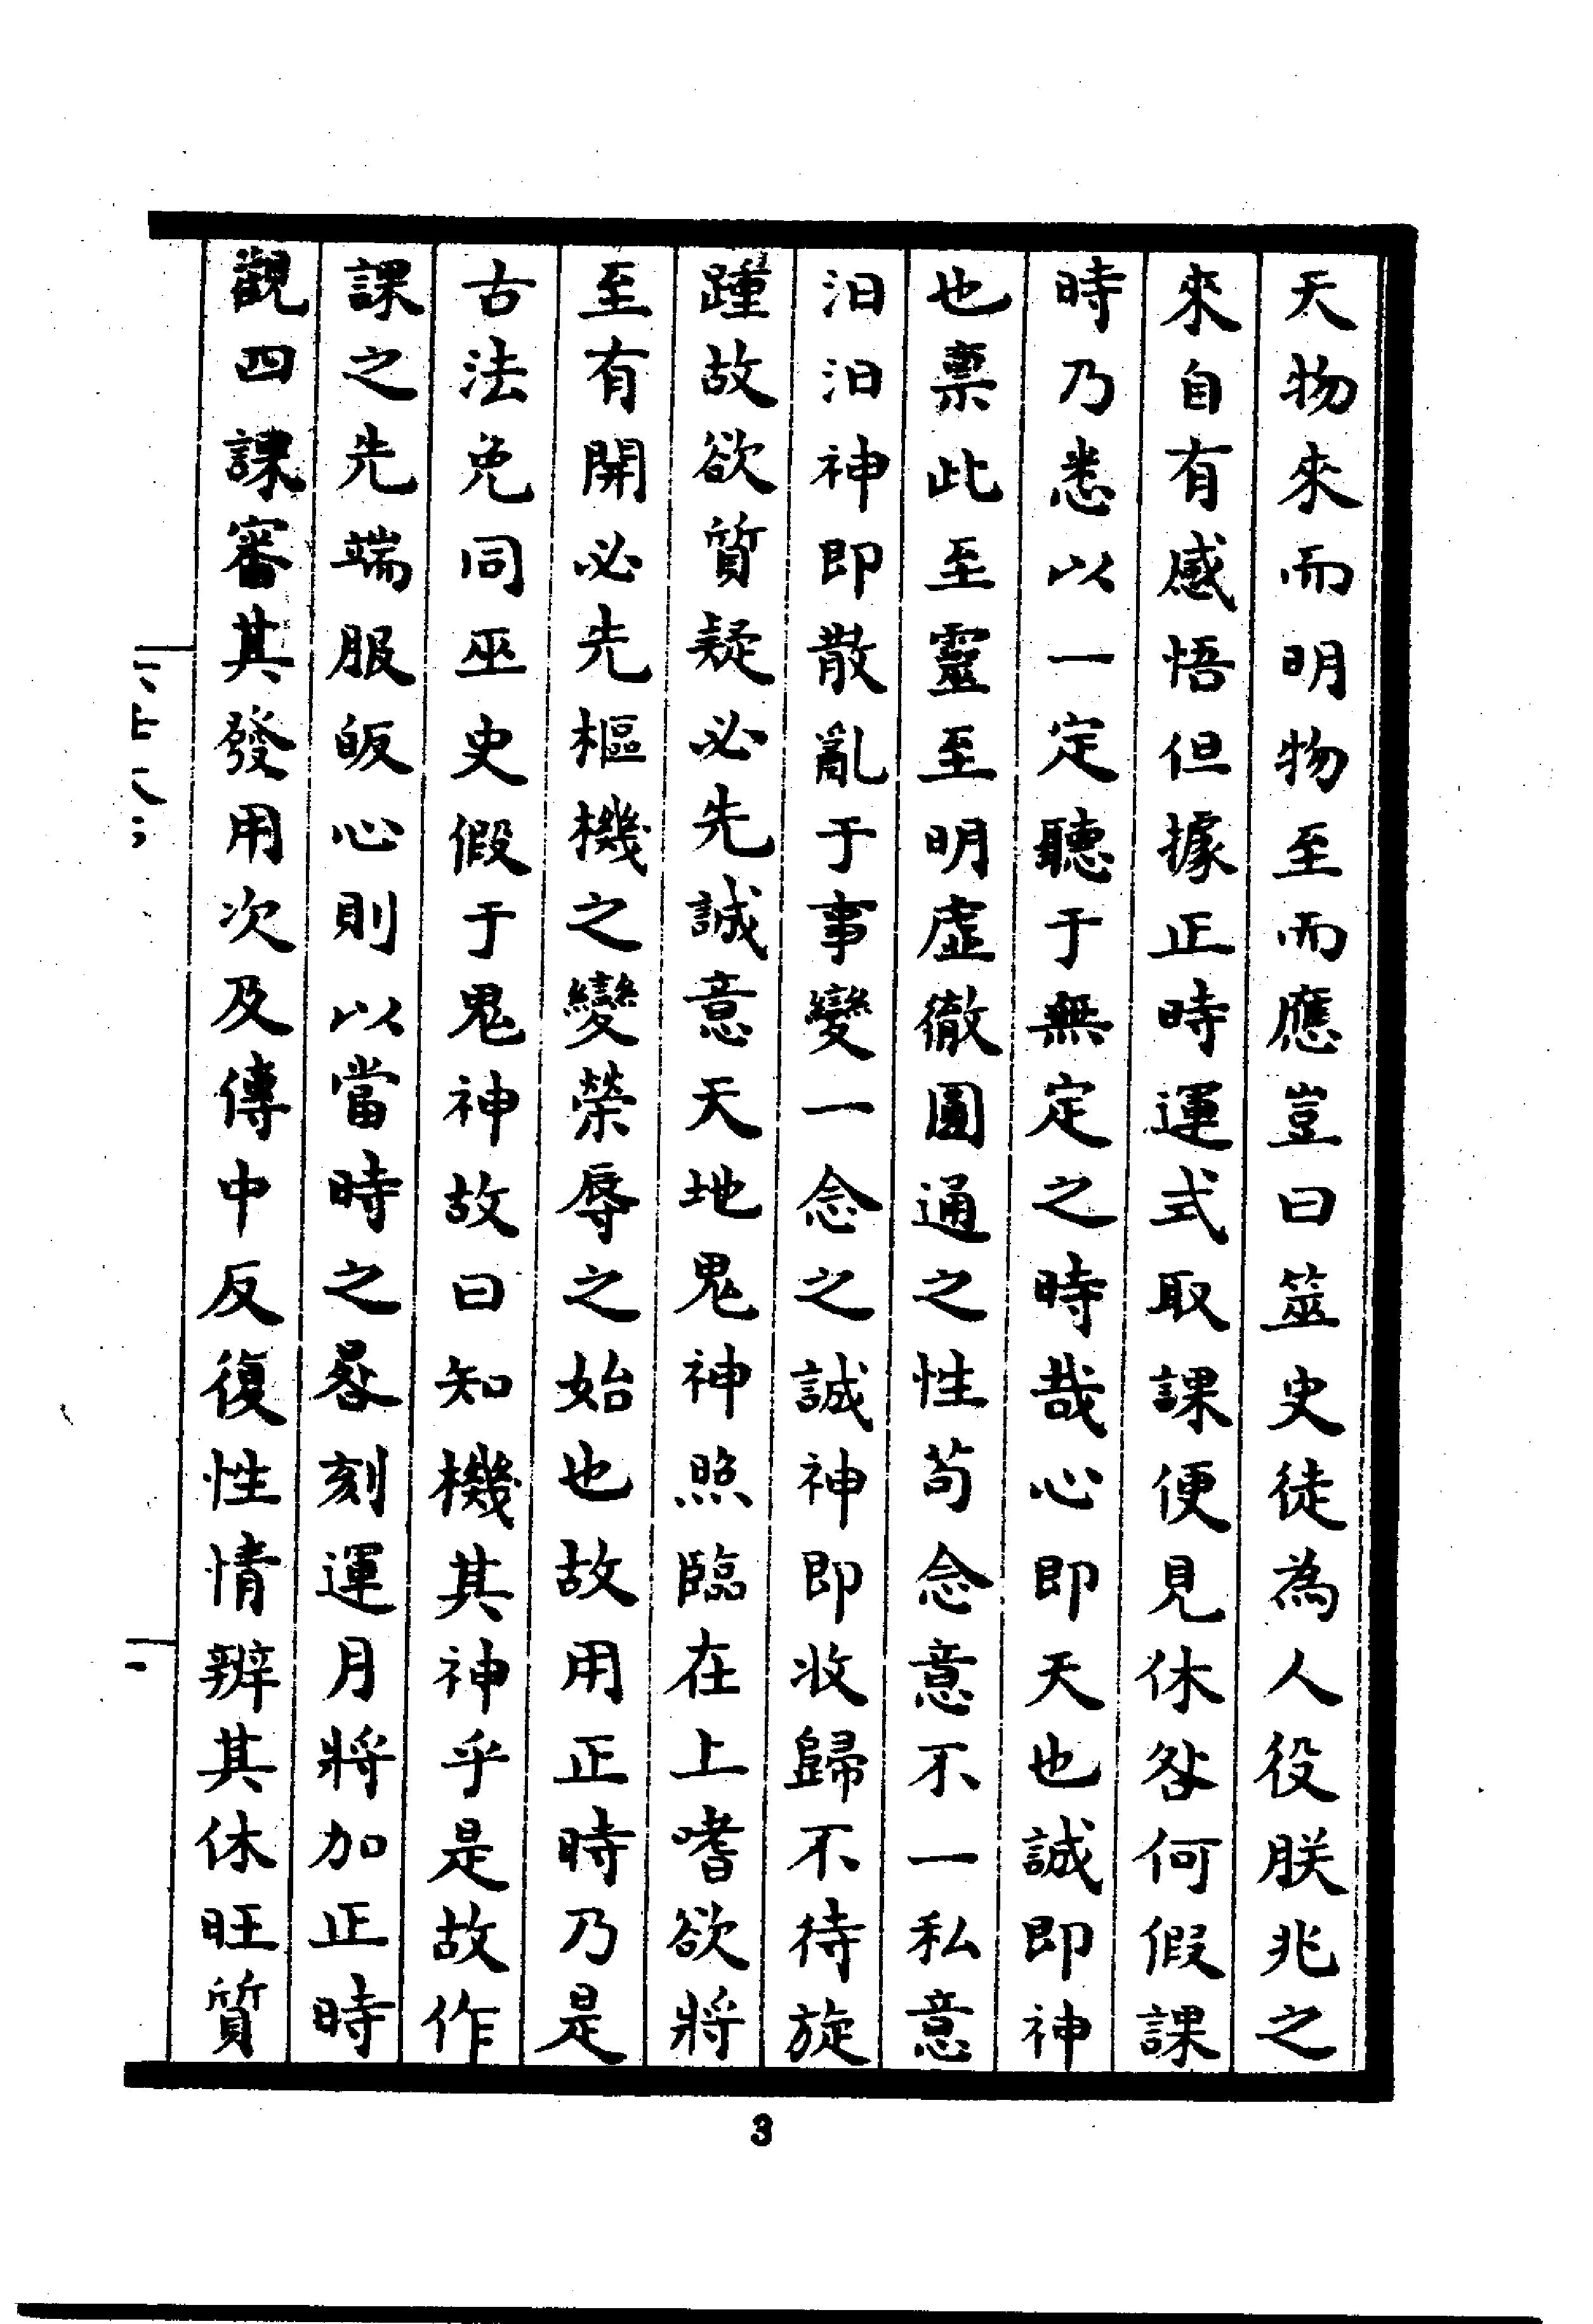 天物來而明物至而應豈曰筮史徒為人役朕兆之
來自有感悟但據正時運式取課便見休咎何假課
時乃悉以一定聽于無定之時哉心即天也誠即神
也稟此至靈至明虛徹圓通之性茍念意不一私意
汨汨神即散亂于事變一念之誠神即收歸不待旋
踵故欲質疑必先誠意天地鬼神照臨在上嗜欲將
至有開必先樞機之變榮辱之始也故用正時乃是
古法免同巫史假于鬼神故曰知機其神乎是故作
課之先端服皈心則以當時之晷刻運月將加正時
觀四課審其發用次及傳中反復性情辨其休旺質
3